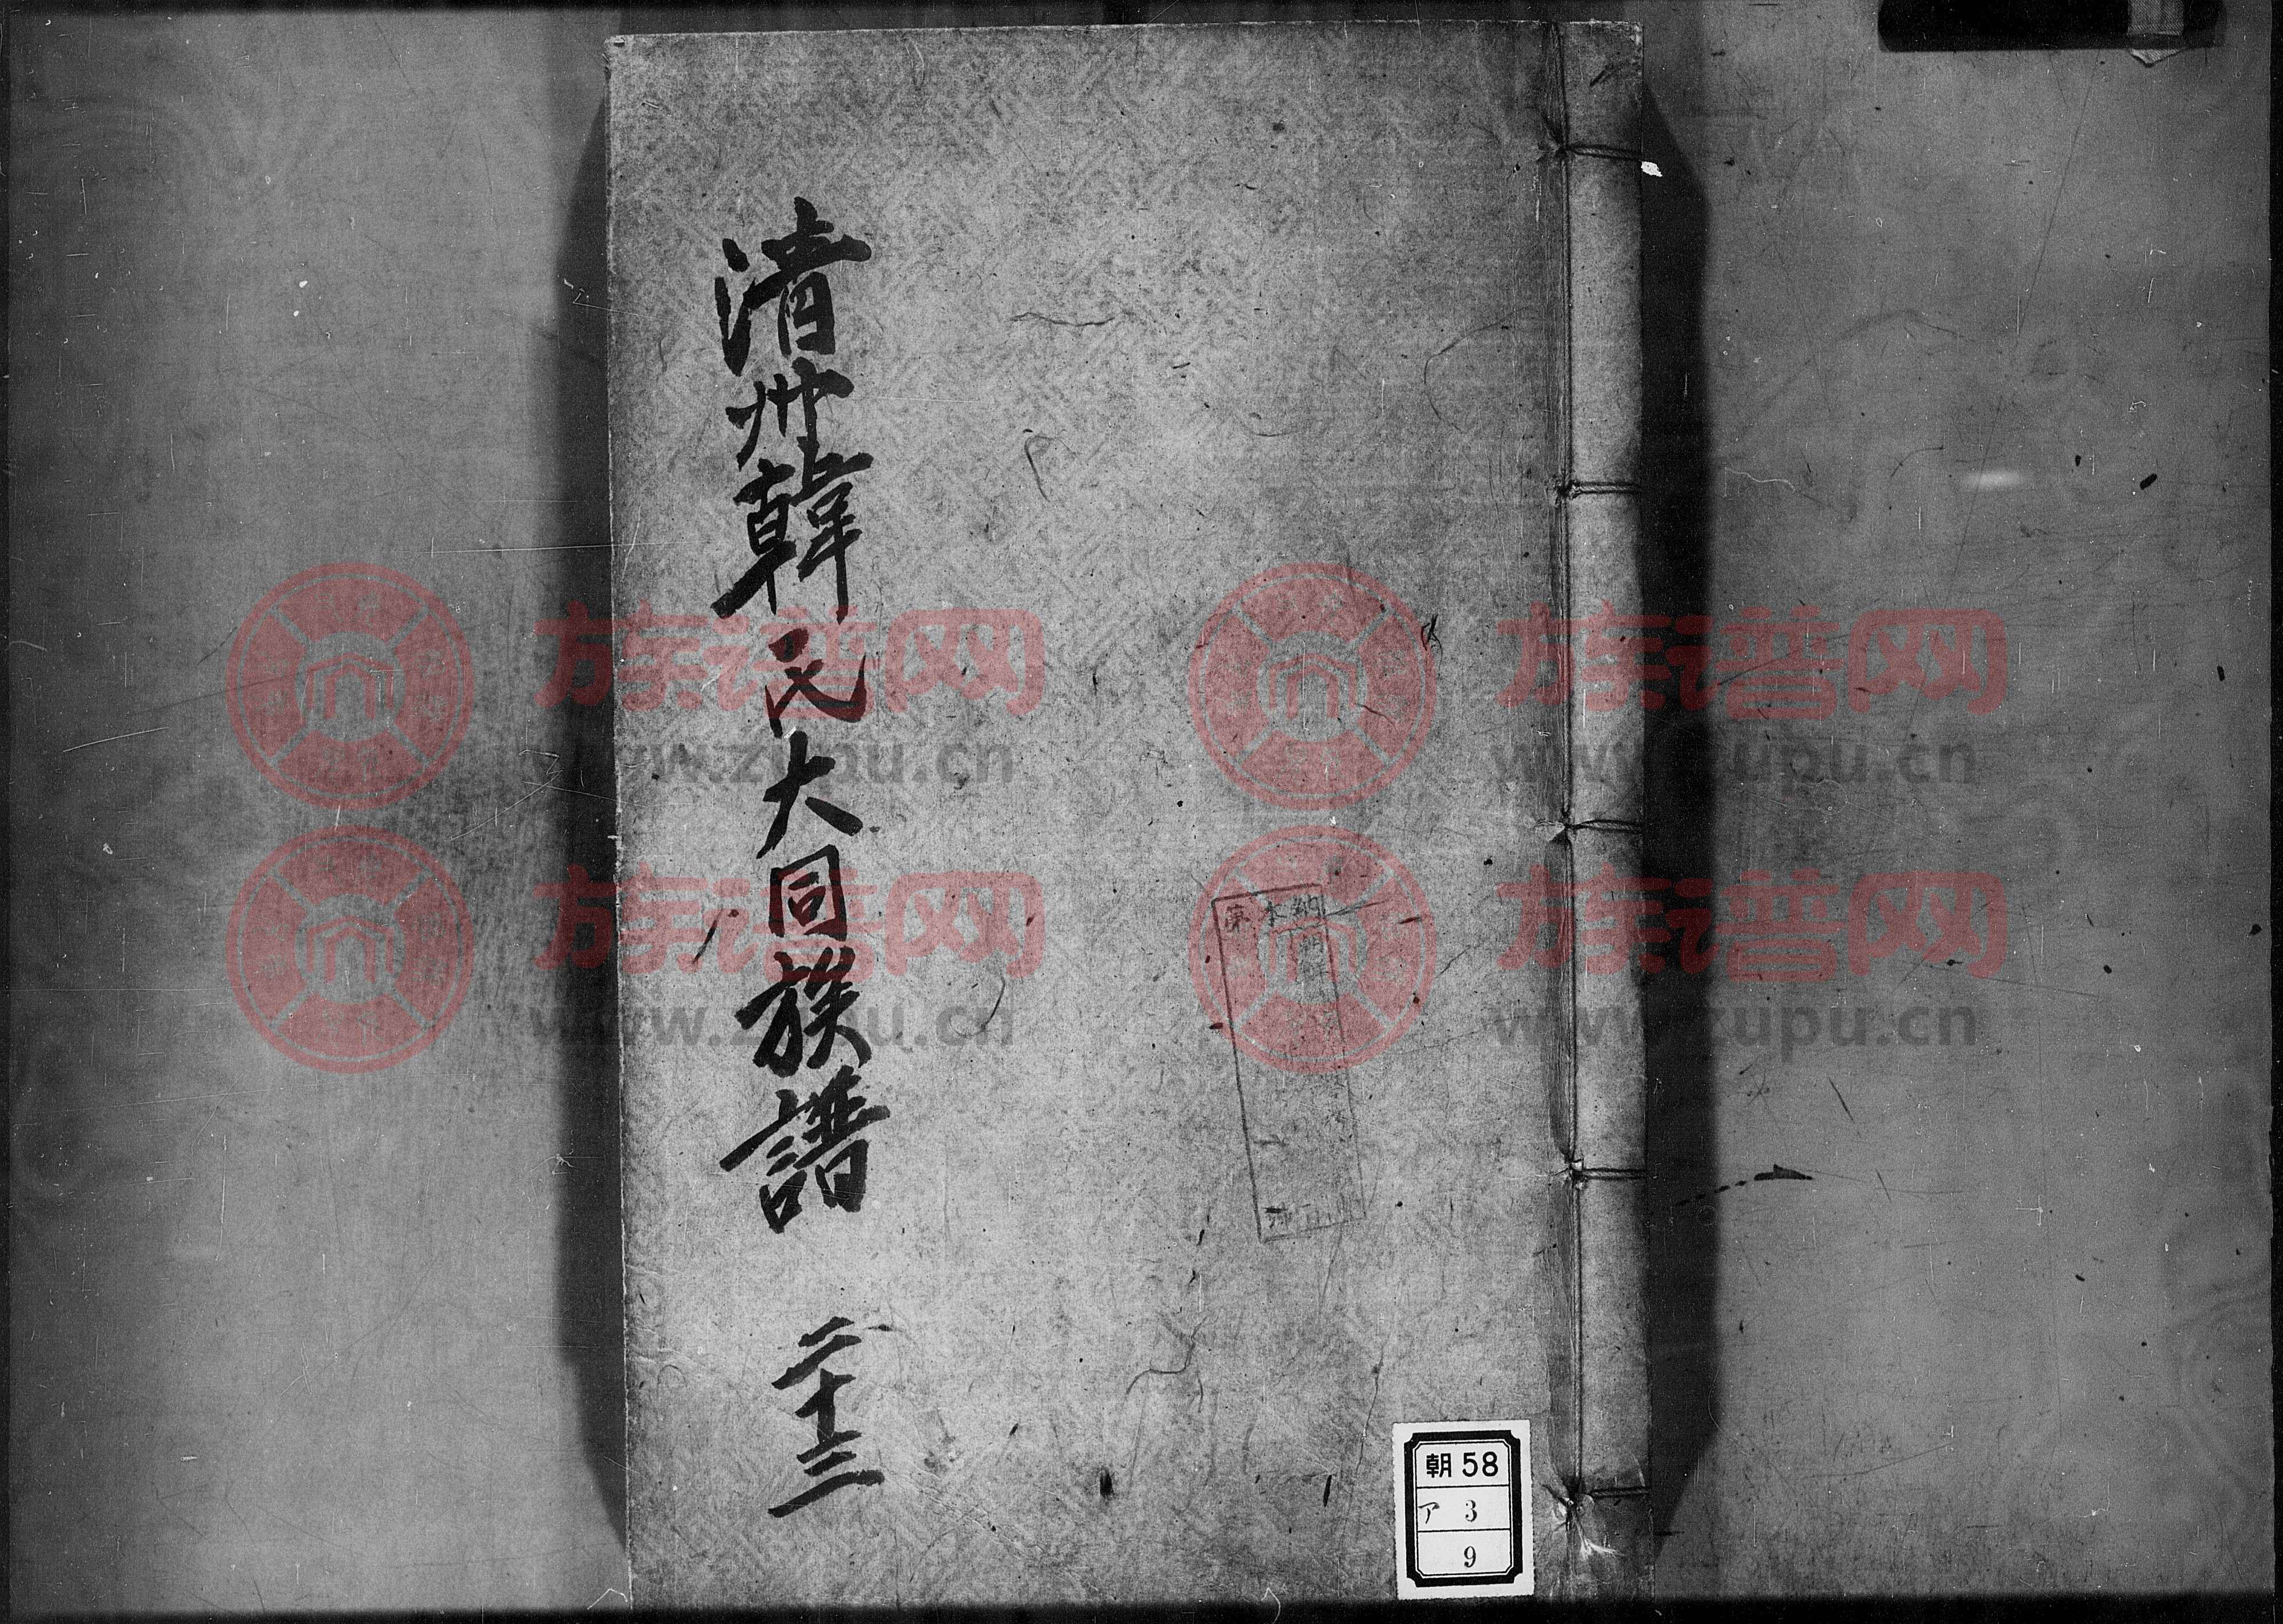 清州韓氏大同族譜 二十三
納本濟
朝58
ア 3
9
族谱网
www.zupu.cn
族谱网
www.zupu.cn
族谱网
www.zupu.cn
族谱网
www.zupu.cn